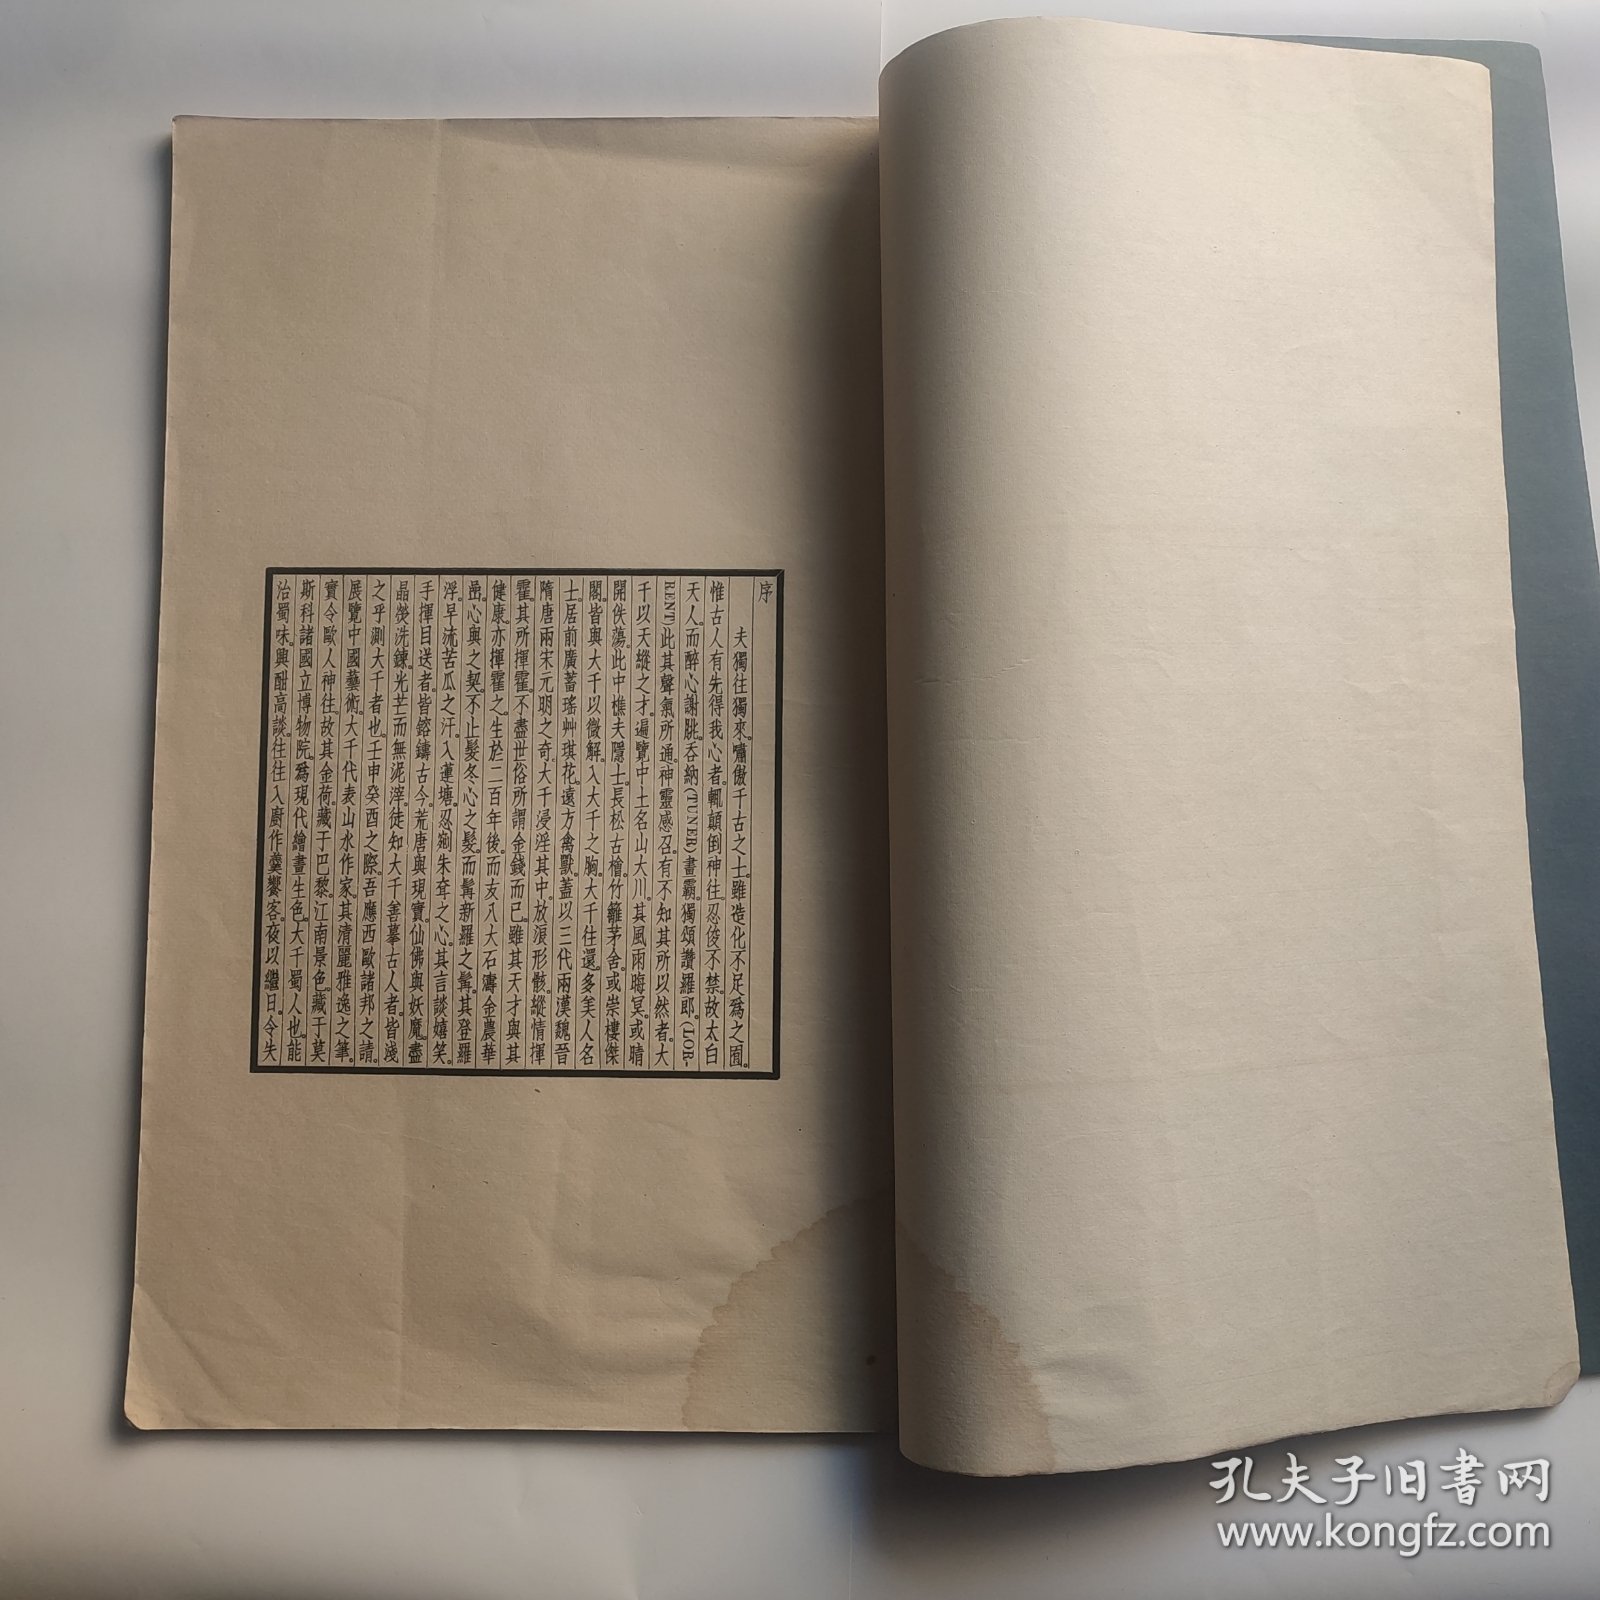 序
夫獨往獨來。嘯傲千古之士。雖造化不足爲之囿。
惟古人有先得我心者。輒顛倒神往。忍俊不禁。故太白
天人。而醉心謝朓。吞納(TUNER)畫霸。獨頌讚羅郎。(LOR-
RENT)此其聲氣所通。神靈感召。有不知其所以然者。大
千以天縱之才。遍覽中土名山大川。其風雨晦冥。或晴
開佚蕩。此中樵夫隱士。長松古檜。竹籬茅舍。或崇樓傑
閣。皆與大千以微解。入大千之胸。大千往還。多美人名
士。居前廣蓄瑤艸琪花。遠方禽獸。蓋以三代兩漢魏晉
隋唐兩宋元明之奇。大千浸淫其中。放浪形骸。縱情揮
霍。其所揮霍。不盡世俗所謂金錢而已。雖其天才與其
健康。亦揮霍之。生於二百年後。而友八大石濤金農華
喦。心與之契。不止髮冬心之髮。而髯新羅之髯。其登羅
浮。早流苦瓜之汗。入蓮塘。忍剜朱耷之心。其言談嬉笑。
手揮目送者。皆鎔鑄古今。荒唐與現實。仙佛與妖魔。盡
晶熒洗鍊。光芒而無泥滓。徒知大千善摹古人者。皆淺
之乎測大千者也。壬申癸酉之際。吾應西歐諸邦之請。
展覽中國藝術。大千代表山水作家。其清麗雅逸之筆。
實令歐人神往。故其金荷。藏于巴黎。江南景色。藏于莫
斯科諸國立博物院。爲現代繪畫生色。大千蜀人也。能
治蜀味。興酣高談。往往入廚作羹饗客。夜以繼日。令失
孔夫子旧书网
www.kongfz.com